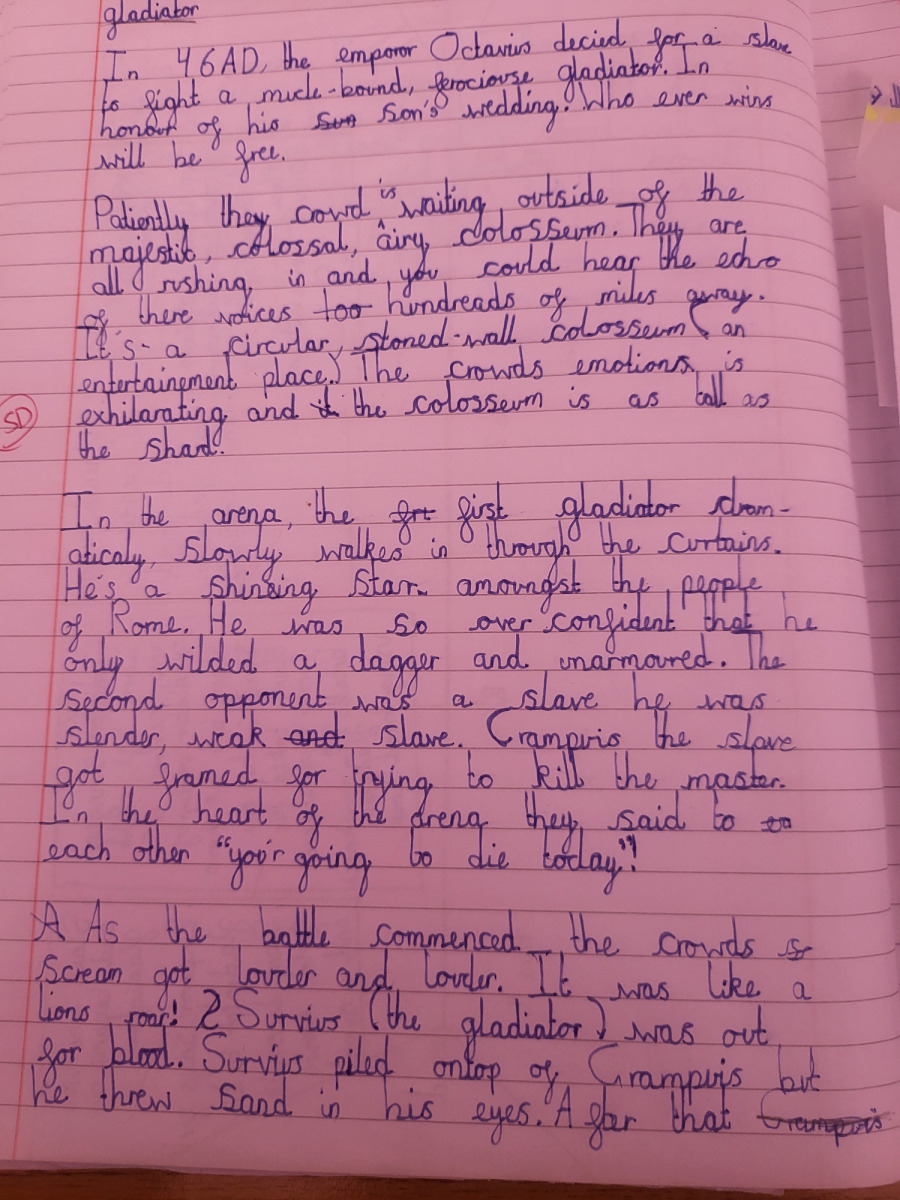 gladiator
In 46AD, the emporor Octavius decied for a slave
to fight a mucle-bound, ferociouse gladiator. In
honour of his sun son's wedding. Who ever wins
will be free.
Patiently they crowd is waiting outside of the
majestic, colossal, airy colosseum. They are
all rushing in and you could hear the echo
of there voices too hundreads of miles away.
It's a circular, stoned-wall colosseum (an
entertainement place.) The crowds emotions is
exhilarating and it the colosseum is as tall as
SD
the Shard.
In the arena, the frt first gladiator dram-
aticaly, slowly walkes in through the curtains.
He's a shinsing star amoungst the people
of Rome. He was so over confident that he
only wilded a dagger and unarmoured. The
second opponent was a slave he was
slender, weak and slave. Crampuis the slave
got framed for trying to kill the master.
In the heart of the arena they said to to
each other "yoo'r going to die today"!
A As the battle commenced the crowds s
scream got louder and louder. It was like a
lions roar! 2 Survius (the gladiator) was out
for blood. Survius piled ontop of Crampuis but
he threw sand in his eyes. After that Crampuis